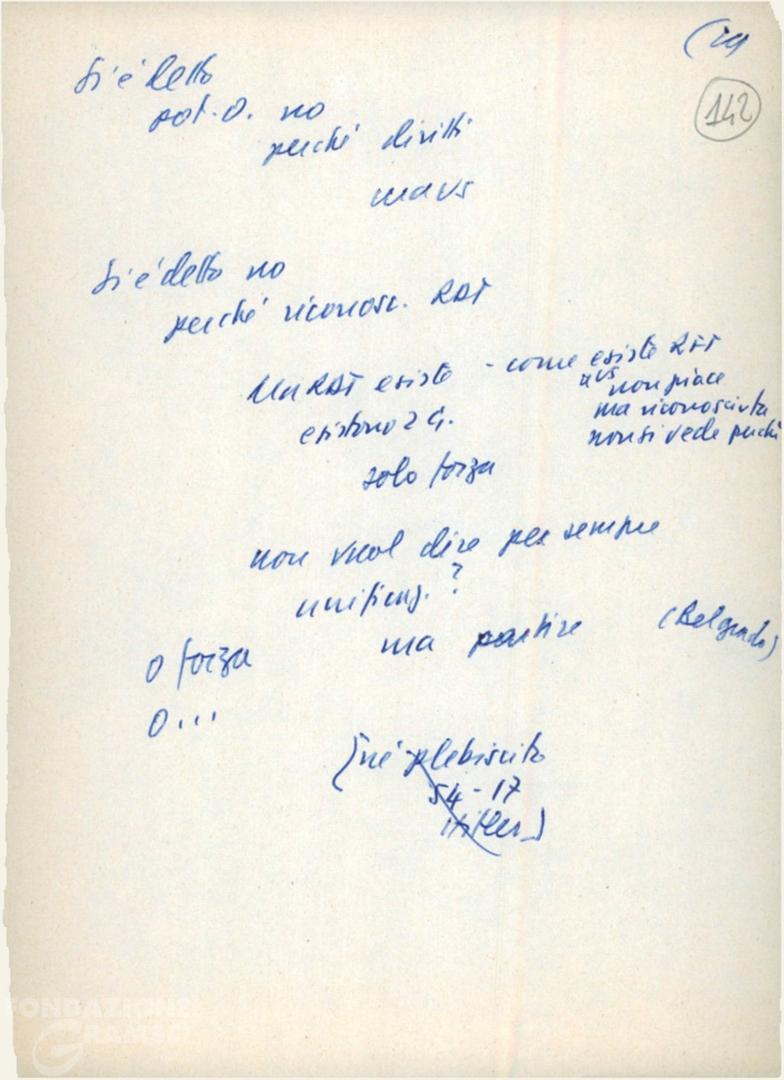 142
Si è detto
pot. O. no
perché diritti
ma US
Si è detto no
perché riconosc. RDT
Ma RDT esiste - come esiste RFT
a US non piace
ma riconosciuta
non si vede perché
esistono 2 G.
solo forza
non vuol dire per sempre
unificaz. ?
ma partire (Belgrado)
o forza
o...
[né plebiscito
54-17
Hitler]
FONDAZIONE
GRAMSCI